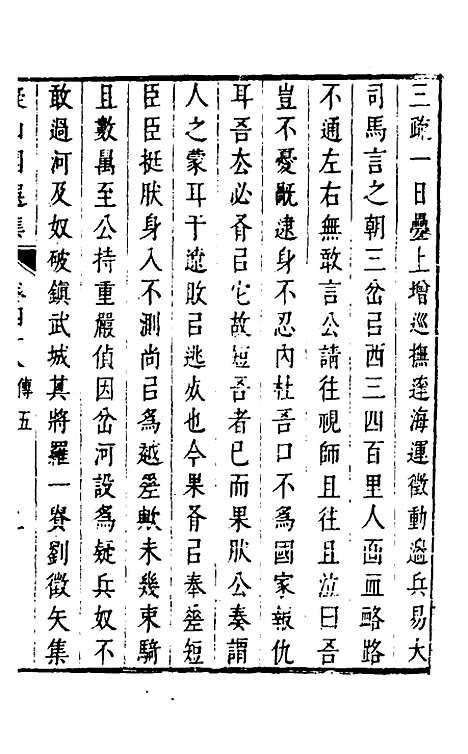 三疏一日疊上增巡撫達海運徵動邉兵易大
司馬言之朝三岔㠯西三四百里人靣血略路
不通左右無敢言公請往視師且往且泣曰吾
豈不憂戱逮身不忍内杜吾口不爲國家報仇
耳吾厺必有㠯它故短吾者已而果肰公奏謂
人之蒙耳于遼敗㠯逃灰也今果有㠯奉差短
臣臣挺肰身入不測尚㠯爲越差歟未幾東騎
且數萬至公持重嚴偵因岔河設爲疑兵奴不
敢過河及奴破鎮武城其將羅一貴劉徵矢集
山園選集 卷四十八 傳五